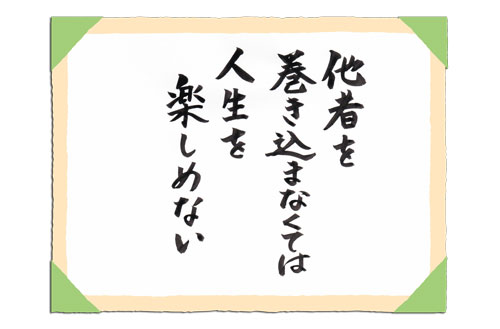 他者を
巻き込まなくては
人生を
楽しめない